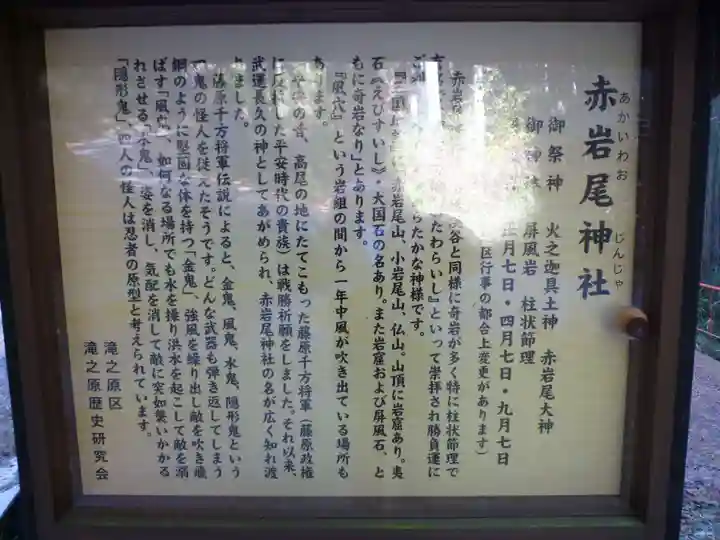 あかいわお じんじゃ
赤岩尾神社
御祭神 火之迦具土神 赤岩尾大神
御神体 屏風岩 柱状節理
月七日・四月七日・九月七日
区行事の都合上変更があります)
赤岩 谷と同様に奇岩が多く特に柱状節理で
たわらいし』といって崇拝され勝負運に
らたかな神様です。
『三国 に「赤岩尾山、小岩尾山、仏山。山頂に岩窟あり。夷
石《えびすいし》・大国石の名あり。また岩窟および屏風石、と
もに奇岩なり」とあります。
『風穴』という岩組の間から一年中風が吹き出ている場所も
あります。
の昔、高尾の地にたてこもった藤原千方将軍(藤原政権
に反抗した平安時代の貴族)は戦勝祈願をしました。それ以来、
武運長久の神としてあがめられ、赤岩尾神社の名が広く知れ渡
りました。
藤原千方将軍伝説によると、金鬼、風鬼、水鬼、隠形鬼という
鬼の怪人を従えたそうです。どんな武器も弾き返してしまう
鋼のように堅固な体を持つ「金鬼」、強風を繰り出し敵を吹き飛
ばす「風鬼」、如何なる場所でも水を操り洪水を起こして敵を溺
れさせる「水鬼」、姿を消し、気配を消して敵に突如襲いかかる
「隠形鬼」四人の怪人は忍者の原型と考えられています。
滝之原区
滝之原歴史研究会